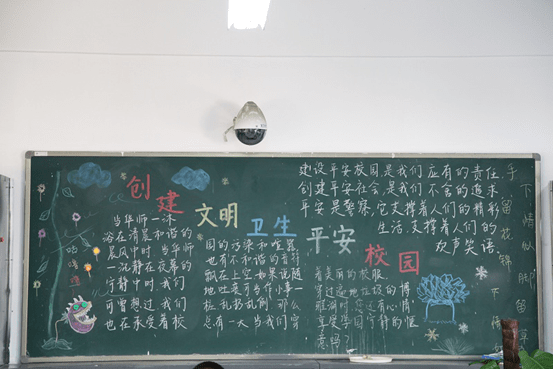 创建
文明
卫生
平安
校园
建设平安校园是我们应有的责任
创建平安社会,是我们不舍的追求
平安是警察,它支撑着人们的精彩
生活,支撑着人们的
欢声笑语
当华师一沐
浴在清晨和谐的
晨风中时,当华师
一沉静在夜幕的
宁静中时,我们
可曾想过,我们
也在承受着校
园的污染和喧嚣
也有不和谐的音符
飘在上空,如果说随
地吐
乱扔乱削
那么
总有一天当我们穿
着美丽的校服
穿过
垃圾的
时
有心情
享受学园宁静的惬
意吗?
手下留情
花似锦
脚下留